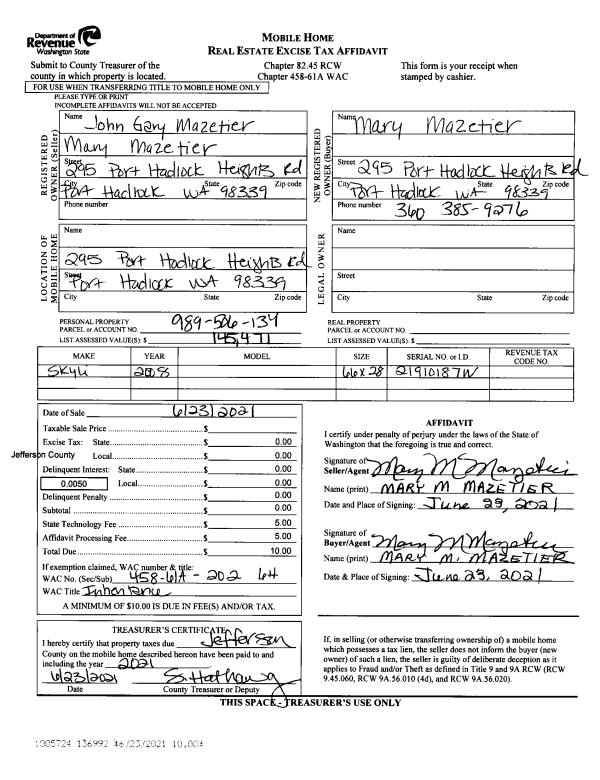 Department of
Revenue
Washington State
MOBILE HOME
REAL ESTATE EXCISE TAX AFFIDAVIT
Submit to County Treasurer of the
county in which property is located.
Chapter 82.45 RCW
Chapter 458-61A WAC
This form is your receipt when
stamped by cashier.
FOR USE WHEN TRANSFERRING TITLE TO MOBILE HOME ONLY
PLEASE TYPE OR PRINT
INCOMPLETE AFFIDAVITS WILL NOT BE ACCEPTED
REGISTERED
OWNER (Seller)
Name
John Gary Mazetier
Mary Mazetier
Street
295 Port Hadlock Heights Rd
City State Zip code
Port Hadlock WA 98339
Phone number
NEW REGISTERED
OWNER (Buyer)
Name
Mary Mazetier
Street
295 Port Hadlock Heights Rd
City State Zip code
Port Hadlock WA 98339
Phone number
360 385-9276
LOCATION OF
MOBILE HOME
Name
295 Port Hadlock Heights Rd
Street
Port Hadlock WA 98339
City State Zip code
LEGAL OWNER
Name
Street
City State Zip code
PERSONAL PROPERTY
PARCEL or ACCOUNT NO. 989-506-134
LIST ASSESSED VALUE(S): $ 145,471
REAL PROPERTY
PARCEL or ACCOUNT NO.
LIST ASSESSED VALUE(S): $
MAKE YEAR MODEL SIZE SERIAL NO. or I.D. REVENUE TAX
CODE NO.
Skyli 2008 66x28 21910187W
Date of Sale 6/23/2021
Taxable Sale Price $
Excise Tax: State $ 0.00
Jefferson County Local $ 0.00
Delinquent Interest: State $ 0.00
0.0050 Local $ 0.00
Delinquent Penalty $ 0.00
Subtotal $ 0.00
State Technology Fee $ 5.00
Affidavit Processing Fee $ 5.00
Total Due $ 10.00
If exemption claimed, WAC number & title:
WAC No. (Sec/Sub) 458-61A-202 6H
WAC Title Inheritance
A MINIMUM OF $10.00 IS DUE IN FEE(S) AND/OR TAX.
AFFIDAVIT
I certify under penalty of perjury under the laws of the State of
Washington that the foregoing is true and correct.
Signature of
Seller/Agent Mary M Mazetier
Name (print) MARY M MAZETIER
Date and Place of Signing: June 23, 2021
Signature of
Buyer/Agent Mary M Mazetier
Name (print) MARY M. MAZETIER
Date & Place of Signing: June 23, 2021
TREASURER'S CERTIFICATE
I hereby certify that property taxes due Jefferson
County on the mobile home described hereon have been paid to and
including the year 2021
6/23/2021 S. Hathaway
Date County Treasurer or Deputy
If, in selling (or otherwise transferring ownership of) a mobile home
which possesses a tax lien, the seller does not inform the buyer (new
owner) of such a lien, the seller is guilty of deliberate deception as it
applies to Fraud and/or Theft as defined in Title 9 and 9A RCW (RCW
9.45.060, RCW 9A.56.010 (4d), and RCW 9A.56.020).
THIS SPACE - TREASURER'S USE ONLY
1005724 136992 *6/23/2021 10.00*